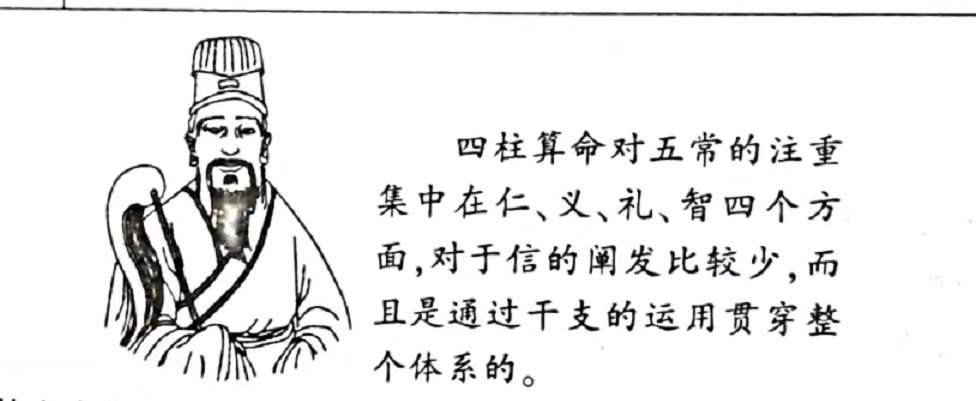 四柱算命对五常的注重
集中在仁、义、礼、智四个方
面,对于信的阐发比较少,而
且是通过干支的运用贯穿整
个体系的。